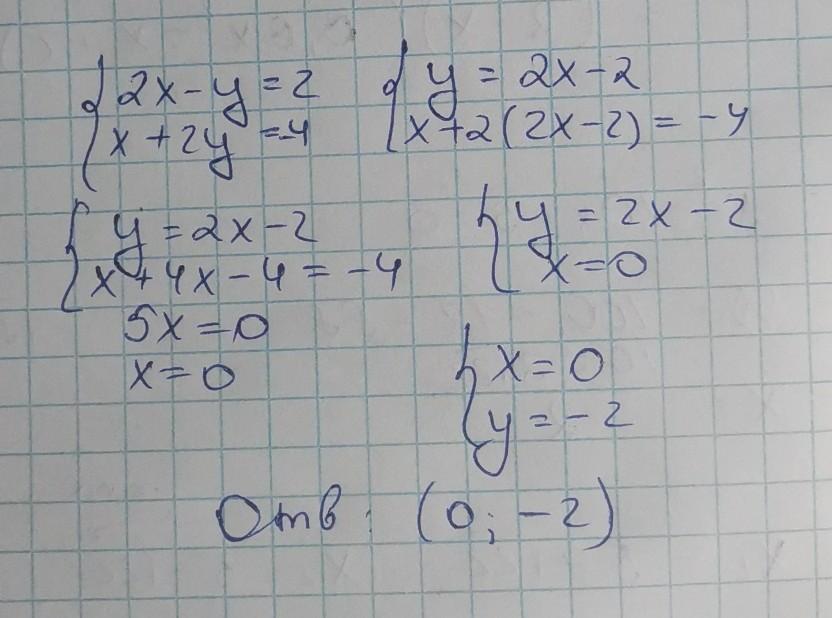 2x-y=2
x+2y=-4
y=2x-2
x+2(2x-2)=-4
y=2x-2
x+4x-4=-4
5x=0
x=0
y=2x-2
x=0
x=0
y=-2
Отв: (0;-2)